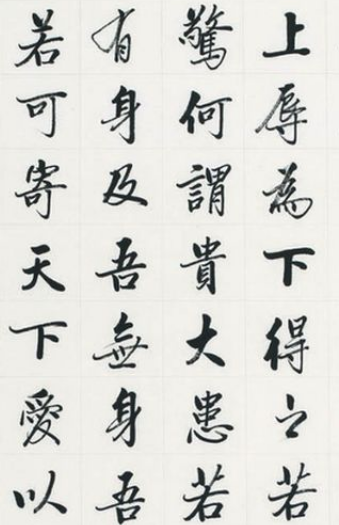 上辱為下得之若
驚何謂貴大患若
有身及吾無身吾
若可寄天下愛以